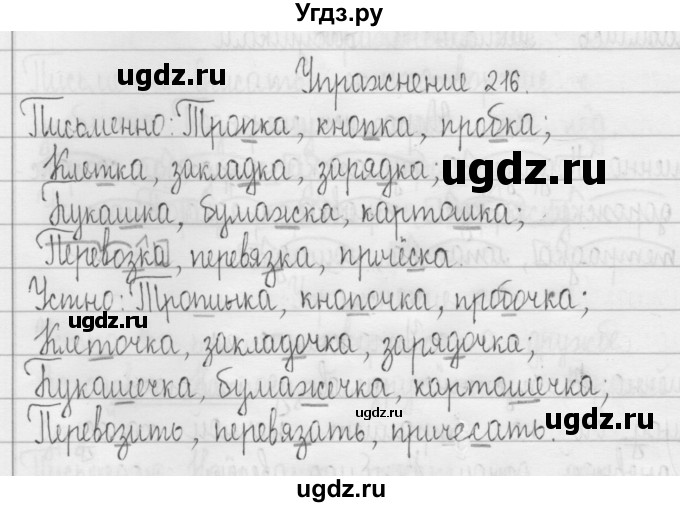 Угдз.ру
Упражнение 216.
Письменно: Тропка, кнопка, пробка;
Клетка, закладка, зарядка;
Букашка, бумажка, картошка,
Перевозка, перевязка, причёска.
Устно: Тропинка, кнопочка, пробочка;
Клеточка, закладочка, зарядочка;
Букашечка, бумажечка, картошечка;
Перевозить, перевязать, причесать.
ugdz.ru
ugdz.ru
ugdz.ru
ugdz.ru
ugdz.ru
ugdz.ru
ugdz.ru
ugdz.ru